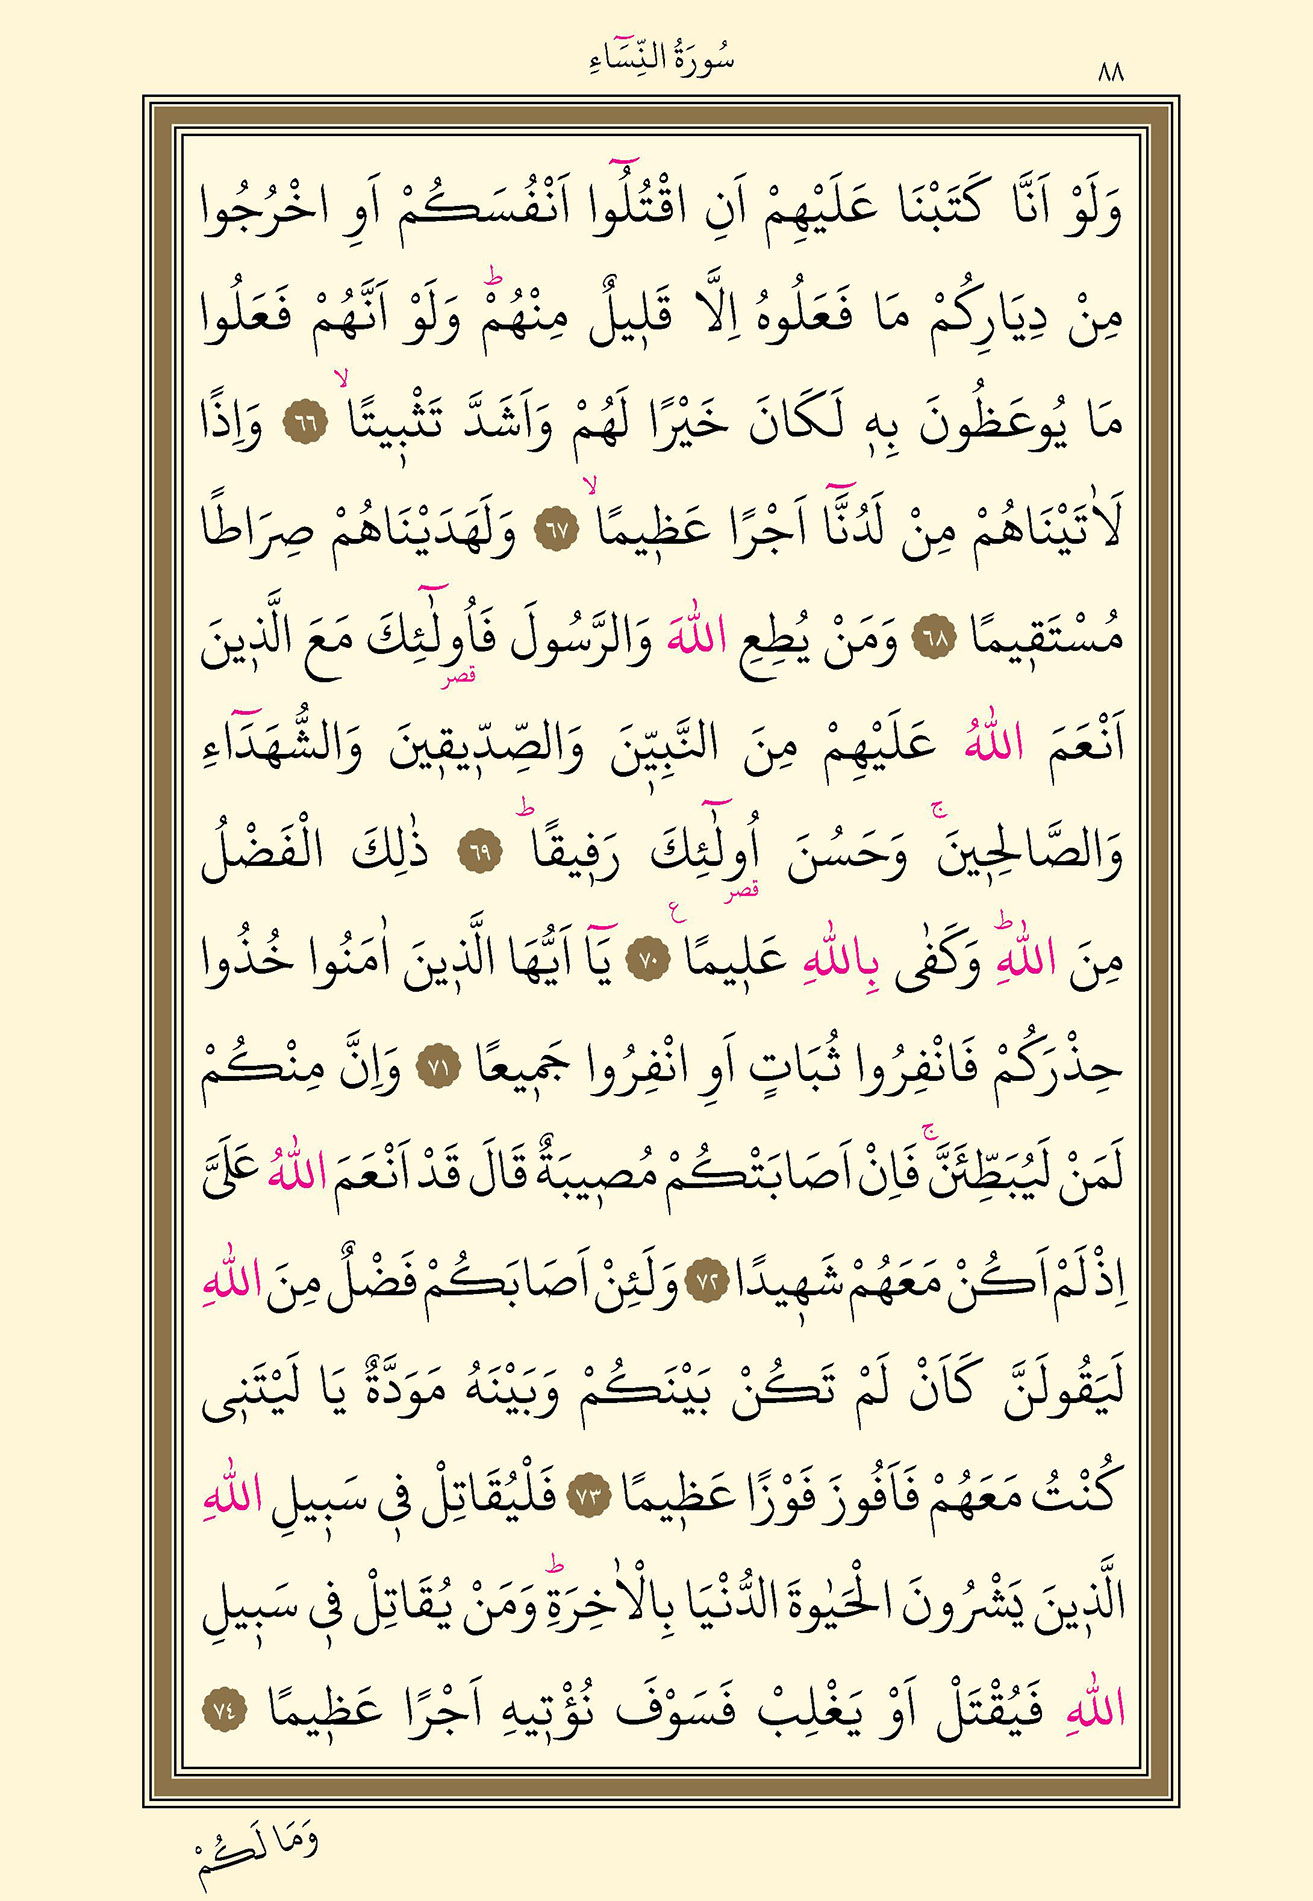 ٨٨
سُورَةُ النِّسَٓاءِ
وَلَوْ اَنَّا كَتَبْنَا عَلَيْهِمْ اَنِ اقْتُلُٓوا اَنْفُسَكُمْ اَوِ اخْرُجُوا
مِنْ دِيَارِكُمْ مَا فَعَلُوهُ اِلَّا قَل۪يلٌ مِنْهُمْۜ وَلَوْ اَنَّهُمْ فَعَلُوا
مَا يُوعَظُونَ بِه۪ لَكَانَ خَيْرًا لَهُمْ وَاَشَدَّ تَثْب۪يتًاۙ ٦٦ وَاِذًا
لَاٰتَيْنَاهُمْ مِنْ لَدُنَّٓا اَجْرًا عَظ۪يمًاۙ ٦٧ وَلَهَدَيْنَاهُمْ صِرَاطًا
مُسْتَق۪يمًا ٦٨ وَمَنْ يُطِعِ اللّٰهَ وَالرَّسُولَ فَاُو۬لٰٓئِكَ مَعَ الَّذ۪ينَ
قصر
اَنْعَمَ اللّٰهُ عَلَيْهِمْ مِنَ النَّبِيّ۪نَ وَالصِّدّ۪يق۪ينَ وَالشُّهَدَٓاءِ
وَالصَّالِح۪ينَۚ وَحَسُنَ اُو۬لٰٓئِكَ رَف۪يقًاۜ ٦٩ ذٰلِكَ الْفَضْلُ
قصر
مِنَ اللّٰهِۜ وَكَفٰى بِاللّٰهِ عَل۪يمًاع ٧٠ يَٓا اَيُّهَا الَّذ۪ينَ اٰمَنُوا خُذُوا
حِذْرَكُمْ فَانْفِرُوا ثُبَاتٍ اَوِ انْفِرُوا جَم۪يعًا ٧١ وَاِنَّ مِنْكُمْ
لَمَنْ لَيُبَطِّئَنَّۚ فَاِنْ اَصَابَتْكُمْ مُص۪يبَةٌ قَالَ قَدْ اَنْعَمَ اللّٰهُ عَلَيَّ
اِذْ لَمْ اَكُنْ مَعَهُمْ شَه۪يدًا ٧٢ وَلَئِنْ اَصَابَكُمْ فَضْلٌ مِنَ اللّٰهِ
لَيَقُولَنَّ كَاَنْ لَمْ تَكُنْ بَيْنَكُمْ وَبَيْنَهُ مَوَدَّةٌ يَا لَيْتَن۪ى
كُنْتُ مَعَهُمْ فَاَفُوزَ فَوْزًا عَظ۪يمًا ٧٣ فَلْيُقَاتِلْ ف۪ى سَب۪يلِ اللّٰهِ
الَّذ۪ينَ يَشْرُونَ الْحَيٰوةَ الدُّنْيَا بِالْاٰخِرَةِۜ وَمَنْ يُقَاتِلْ ف۪ى سَب۪يلِ
اللّٰهِ فَيُقْتَلْ اَوْ يَغْلِبْ فَسَوْفَ نُؤْت۪يهِ اَجْرًا عَظ۪يمًا ٧٤
وَمَا لَكُمْ